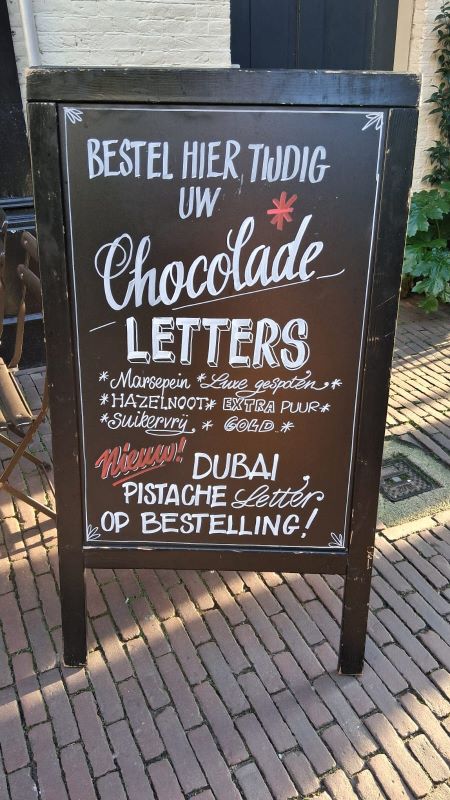 BESTEL HIER TIJDIG
UW *
Chocolade
LETTERS
*Marsepein *Luxe gespoten*
*HAZELNOOT* EXTRA PUUR*
*Suikervrij * GOLD *
Nieuw! DUBAI
PISTACHE Letter
OP BESTELLING!